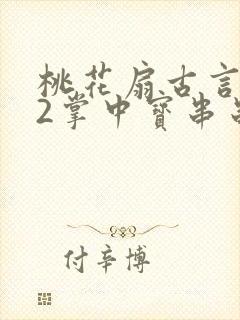 桃花扇古言
2掌中寶串
付辛博